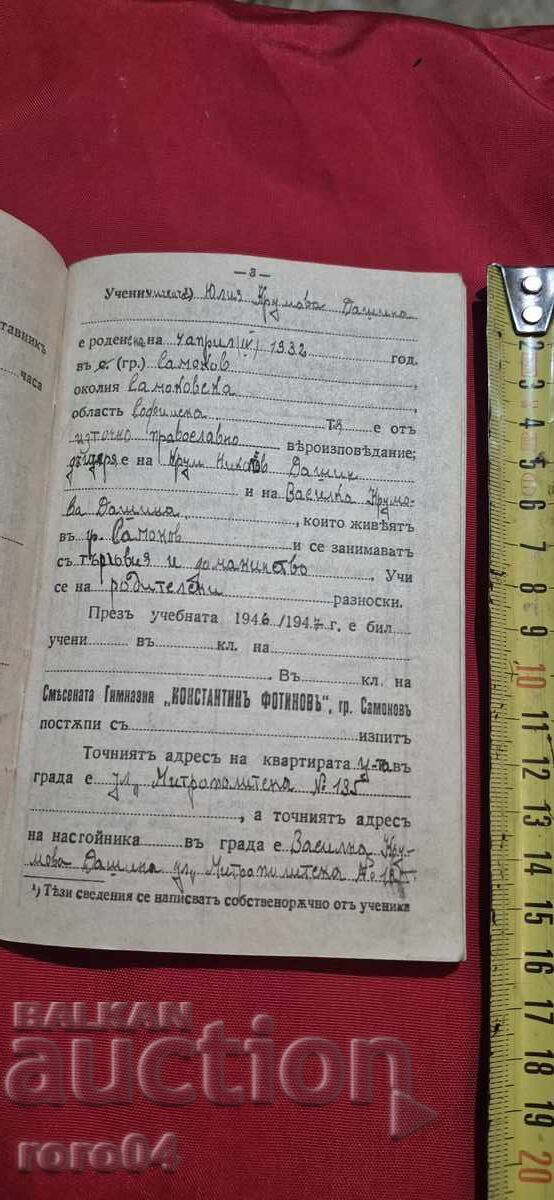 тавникъ
часа
—3—
Ученичката¹) Юлия Крумова Дашина
е роденена на 4 април (IV) 1932 год.
въ с. (гр.) Самоков
околия Самоковска
област Софийска Тя е отъ
източно православно вѣроизповѣдание;
дъщеря е на Крум Николов Дашин
и на Василка Крумо-
ва Дашина, които живѣятъ
въ гр. Самоков и се занимаватъ
съ търговия и домакинство. Учи
се на родителски разноски.
Презъ учебната 1946/1947 г. е бил
учени въ кл. на
Въ кл. на
Смѣсената Гимназия „КОНСТАНТИНЪ ФОТИНОВЪ", гр. Самоковъ
постѫпи съ изпитъ
Точниятъ адресъ на квартирата у-та въ
града е ул. Митрополитска № 135
, а точниятъ адресъ
на настойника въ града е Василка Кру-
мова Дашина ул. Митрополитска №
¹) Тѣзи сведения се написватъ собственорѫчно отъ ученика
2
3
4
5
6
7
8
9
10
11
12
13
14
15
16
17
18
19
20
BALKAN
auction
roro04